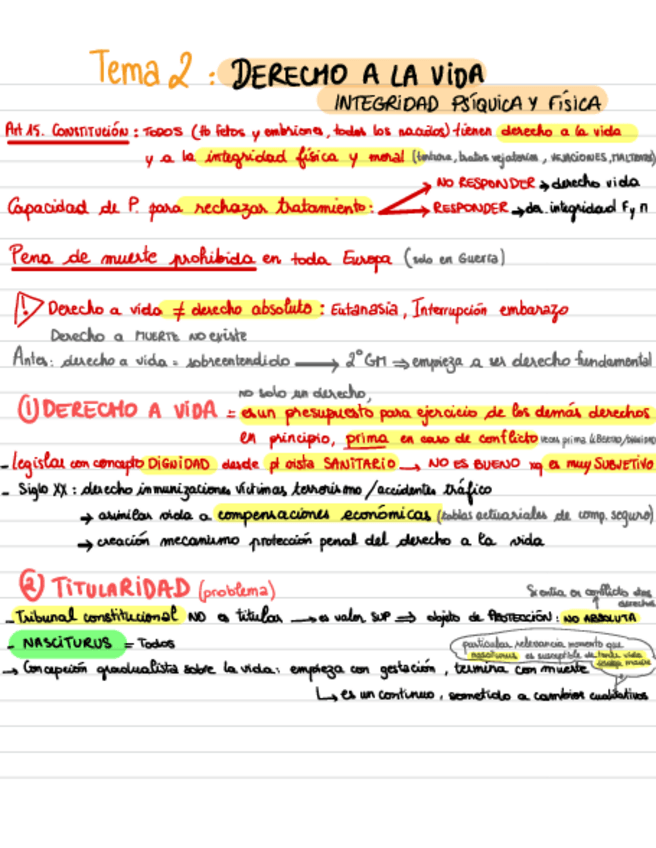 Tema 2 : DERECHO A LA VIDA
INTEGRIDAD PSÍQUICA Y FÍSICA
Art 15. CONSTITUCIÓN : TODOS (tb fetos y embriones, todos los nacidos) tienen derecho a la vida
y a la integridad física y moral (tortura, tratos vejatorios, VEJACIONES, MALTRATOS)
NO RESPONDER → derecho vida
Capacidad de P. para rechazar tratamiento:
RESPONDER → der. integridad F y M
Pena de muerte prohibida en toda Europa (solo en Guerra)
! Derecho a vida ≠ derecho absoluto : Eutanasia, Interrupción embarazo
Derecho a MUERTE NO existe
Antes: derecho a vida = sobreentendido → 2ª GM ⇒ empieza a ser derecho fundamental
no solo un derecho,
① DERECHO A VIDA = es un presupuesto para ejercicio de los demás derechos
en principio, prima en caso de conflicto veces prima LIBERTAD/DIGNIDAD
- legislar con concepto DIGNIDAD desde pt vista SANITARIO → NO ES BUENO xq es muy SUBJETIVO
- Siglo XX : derecho inmunizaciones víctimas terrorismo / accidentes tráfico
→ asimilar vida a compensaciones económicas (tablas actuariales de comp. seguro)
→ creación mecanismo protección penal del derecho a la vida
② TITULARIDAD (problema)
Si entra en conflicto dos derechos
- Tribunal constitucional NO es titular → es valor SUP ⇒ objeto de PROTECCIÓN : NO ABSOLUTA
- NASCITURUS = Todos
particular relevancia momento que
nasciturus es susceptible de tener vida
→ Concepción gradualista sobre la vida: empieza con gestación, termina con muerte
↳ es un continuo, sometido a cambios cualitativos